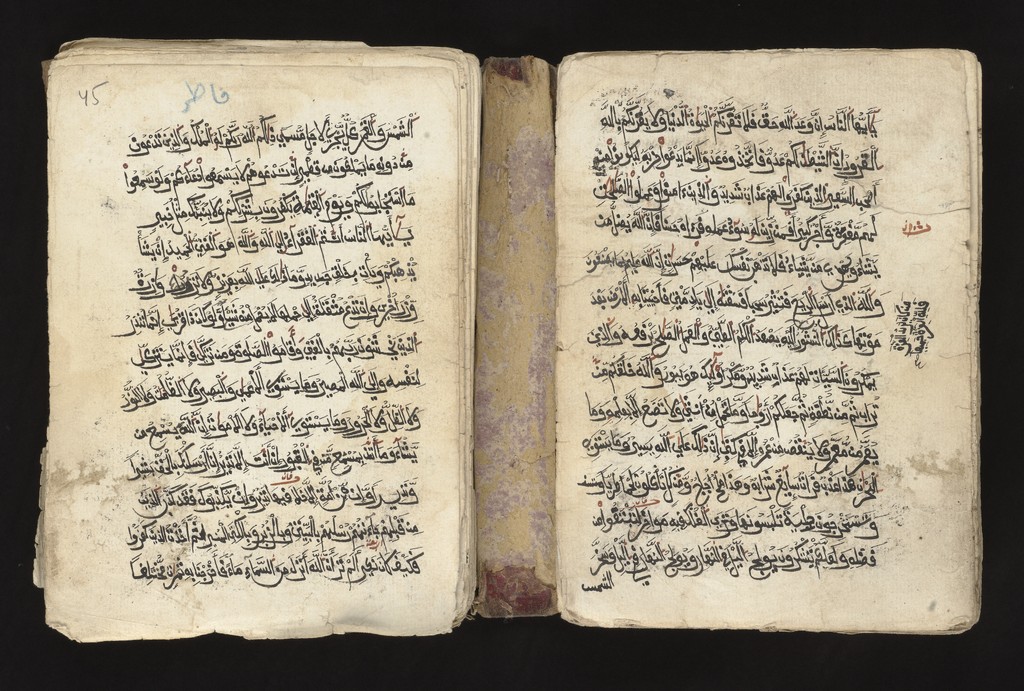 يا أيها الناس إن وعد الله حق فلا تغرنكم الحيوة الدنيا ولا يغرنكم بالله
الغرور إن الشيطن لكم عدو فاتخذوه عدوا إنما يدعوا حزبه ليكونوا من
أصحب السعير الذين كفروا لهم عذاب شديد والذين ءامنوا وعملوا الصلحت
لهم مغفرة وأجر كبير أفمن زين له سوء عمله فرءاه حسنا فإن الله يضل من
يشاء ويهدي من يشاء فلا تذهب نفسك عليهم حسرت إن الله عليم بما يصنعون
والله الذي أرسل الريح فتثير سحابا فسقنه إلى بلد ميت فأحيينا به الأرض بعد
موتها كذلك النشور إليه يصعد الكلم الطيب والعمل الصلح يرفعه والذين
يمكرون السيئات لهم عذاب شديد ومكر أولئك هو يبور والله خلقكم من
تراب ثم من نطفة ثم جعلكم أزوجا وما تحمل من أنثى ولا تضع إلا بعلمه وما
يعمر من معمر ولا ينقص من عمره إلا في كتب إن ذلك على الله يسير وما يستوي
البحرن هذا عذب فرات سايغ شرابه وهذا ملح أجاج ومن كل تأكلون لحما طريا
وتستخرجون حلية تلبسونها وترى الفلك فيه مواخر لتبتغوا من
فضله ولعلكم تشكرون يولج اليل في النهار ويولج النهار في اليل وسخر
الشمس
45
فاطر
الشمس والقمر كل يجري لأجل مسمى ذلكم الله ربكم له الملك والذين تدعون
من دونه ما يملكون من قطمير إن تدعوهم لا يسمعوا دعاءكم ولو سمعوا
ما استجابوا لكم ويوم القيمة يكفرون بشرككم ولا ينبئك مثل خبير
يا أيها الناس أنتم الفقراء إلى الله والله هو الغني الحميد إن يشأ
يذهبكم ويأت بخلق جديد وما ذلك على الله بعزيز ولا تزر وازرة
وزر أخرى وإن تدع مثقلة إلى حملها لا يحمل منه شيء ولو كان ذا قربى إنما تنذر
الذين يخشون ربهم بالغيب وأقاموا الصلوة ومن تزكى فإنما يتزكى
لنفسه وإلى الله المصير وما يستوي الأعمى والبصير ولا الظلمت ولا النور
ولا الظل ولا الحرور وما يستوي الأحياء ولا الأموات إن الله يسمع من
يشاء وما أنت بمسمع من في القبور إن أنت إلا نذير إنا أرسلنك بالحق بشيرا
ونذيرا وإن من أمة إلا خلا فيها نذير وإن يكذبوك فقد كذب الذين
من قبلهم جاءتهم رسلهم بالبينت وبالزبر وبالكتب المنير ثم أخذت الذين كفروا
فكيف كان نكير ألم تر أن الله أنزل من السماء ماء فأخرجنا به ثمرت مختلفا